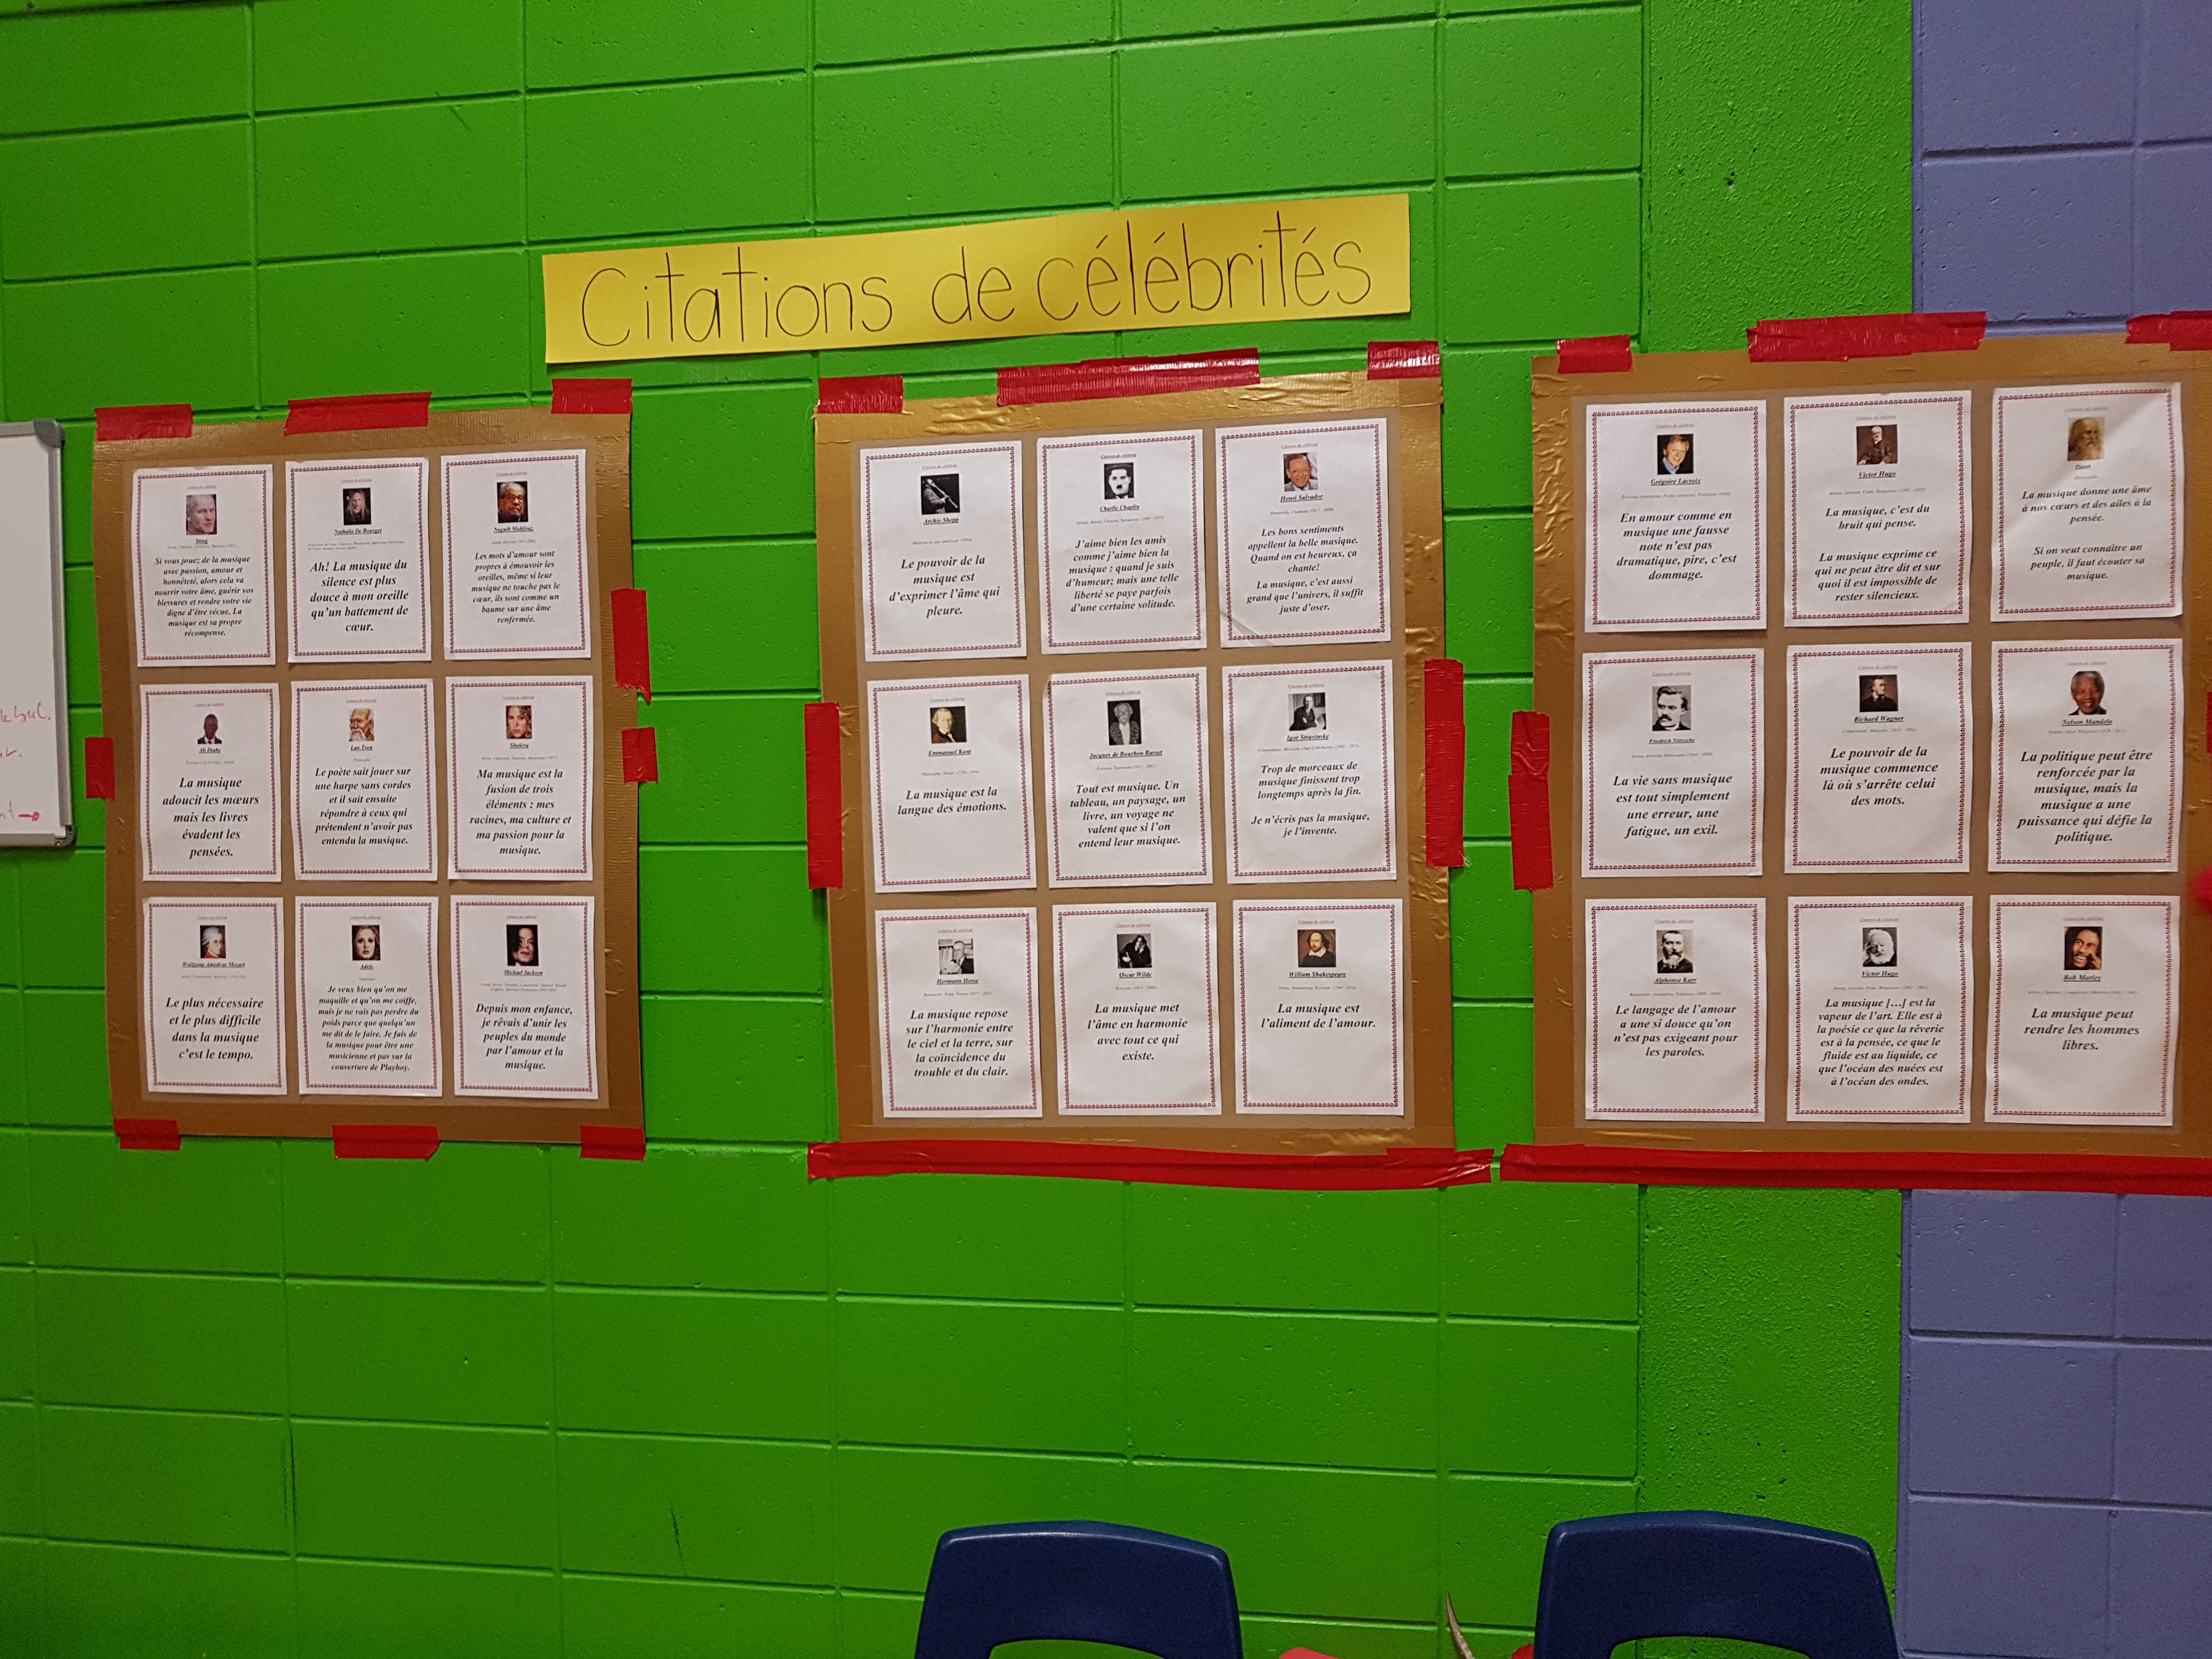 Citations de célébrités
Citation de célébrité
Sting
Si vous jouez de la musique
avec passion, amour et
honnêteté, alors cela va
nourrir votre âme, guérir vos
blessures et rendre votre vie
digne d'être vécue. La
musique est sa propre
récompense.
Citation de célébrité
Nathalie De Bourget
Ah! La musique du
silence est plus
douce à mon oreille
qu'un battement de
cœur.
Citation de célébrité
Naguib Mahfouz
Les mots d'amour sont
propres à émouvoir les
oreilles, même si leur
musique ne touche pas le
cœur, ils sont comme un
baume sur une âme
renfermée.
Citation de célébrité
Ali Diaby
La musique
adoucit les mœurs
mais les livres
évadent les
pensées.
Citation de célébrité
Lao Tseu
Philosophe
Le poète sait jouer sur
une harpe sans cordes
et il sait ensuite
répondre à ceux qui
prétendent n'avoir pas
entendu la musique.
Citation de célébrité
Shakira
Ma musique est la
fusion de trois
éléments : mes
racines, ma culture et
ma passion pour la
musique.
Citation de célébrité
Wolfgang Amadeus Mozart
Le plus nécessaire
et le plus difficile
dans la musique
c'est le tempo.
Citation de célébrité
Adele
Je veux bien qu'on me
maquille et qu'on me coiffe,
mais je ne vais pas perdre du
poids parce que quelqu'un
me dit de le faire. Je fais de
la musique pour être une
musicienne et pas sur la
couverture de Playboy.
Citation de célébrité
Michael Jackson
Depuis mon enfance,
je rêvais d'unir les
peuples du monde
par l'amour et la
musique.
Citation de célébrité
Archie Shepp
Le pouvoir de la
musique est
d'exprimer l'âme qui
pleure.
Citation de célébrité
Charlie Chaplin
J'aime bien les amis
comme j'aime bien la
musique : quand je suis
d'humeur; mais une telle
liberté se paye parfois
d'une certaine solitude.
Citation de célébrité
Henri Salvador
Les bons sentiments
appellent la belle musique.
Quand on est heureux, ça
chante!
La musique, c'est aussi
grand que l'univers, il suffit
juste d'oser.
Citation de célébrité
Emmanuel Kant
La musique est la
langue des émotions.
Citation de célébrité
Jacques de Bourbon Busset
Tout est musique. Un
tableau, un paysage, un
livre, un voyage ne
valent que si l'on
entend leur musique.
Citation de célébrité
Igor Stravinsky
Trop de morceaux de
musique finissent trop
longtemps après la fin.
Je n'écris pas la musique,
je l'invente.
Citation de célébrité
Hermann Hesse
La musique repose
sur l'harmonie entre
le ciel et la terre, sur
la coïncidence du
trouble et du clair.
Citation de célébrité
Oscar Wilde
La musique met
l'âme en harmonie
avec tout ce qui
existe.
Citation de célébrité
William Shakespeare
La musique est
l'aliment de l'amour.
Citation de célébrité
Grégoire Lacroix
En amour comme en
musique une fausse
note n'est pas
dramatique, pire, c'est
dommage.
Citation de célébrité
Victor Hugo
La musique, c'est du
bruit qui pense.
La musique exprime ce
qui ne peut être dit et sur
quoi il est impossible de
rester silencieux.
Citation de célébrité
Platon
Philosophe
La musique donne une âme
à nos cœurs et des ailes à la
pensée.
Si on veut connaître un
peuple, il faut écouter sa
musique.
Citation de célébrité
Friedrich Nietzsche
La vie sans musique
est tout simplement
une erreur, une
fatigue, un exil.
Citation de célébrité
Richard Wagner
Le pouvoir de la
musique commence
là où s'arrête celui
des mots.
Citation de célébrité
Nelson Mandela
La politique peut être
renforcée par la
musique, mais la
musique a une
puissance qui défie la
politique.
Citation de célébrité
Alphonse Karr
Le langage de l'amour
a une si douce qu'on
n'est pas exigeant pour
les paroles.
Citation de célébrité
Victor Hugo
La musique [...] est la
vapeur de l'art. Elle est à
la poésie ce que la rêverie
est à la pensée, ce que le
fluide est au liquide, ce
que l'océan des nuées est
à l'océan des ondes.
Citation de célébrité
Bob Marley
La musique peut
rendre les hommes
libres.